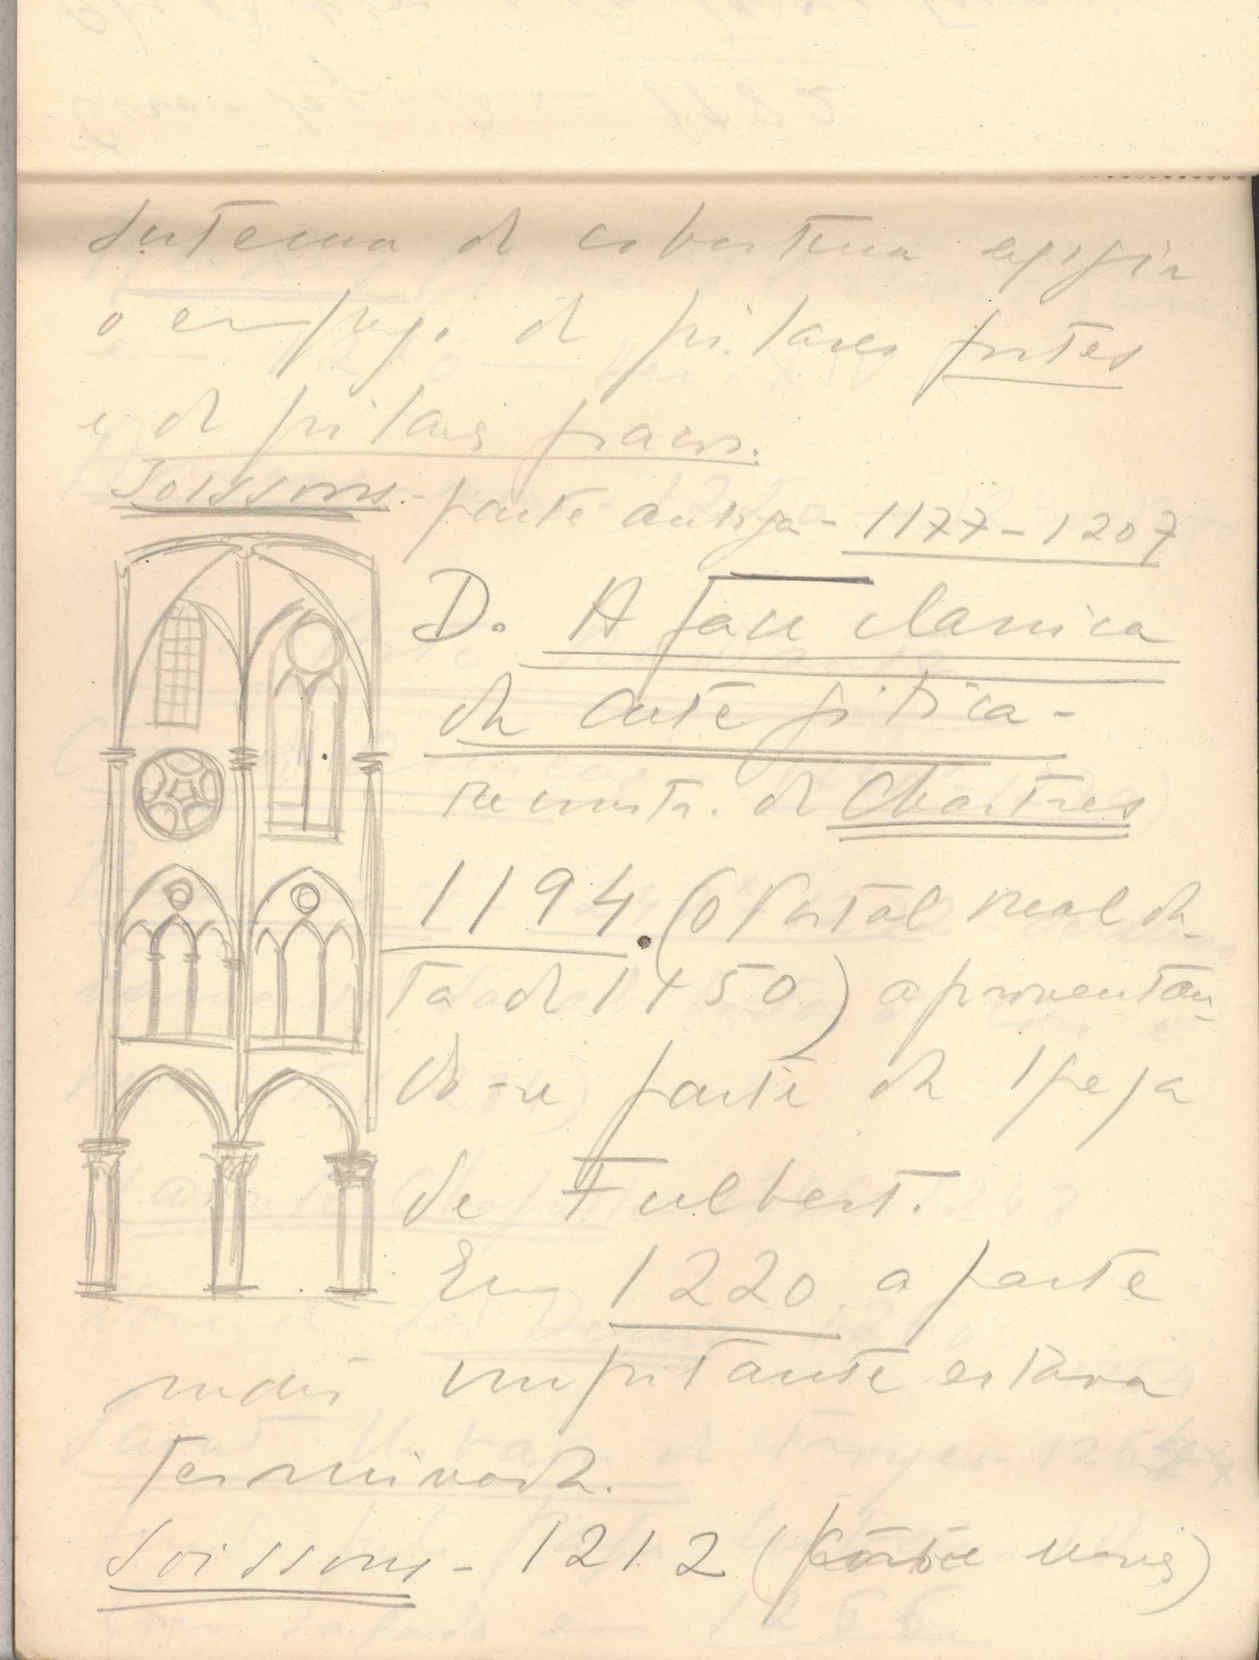 sistema de cobertura exigia
o emprego de pilares fortes
e de pilares fracos.
Soissons - parte antiga - 1177-1207
D. A fase classica
da arte gotica -
reconstr. de Chartres
1194. (O Portal real da-
ta de 1150) aproveitan-
do-se parte da Igreja
de Fulbert.
Em 1220 a parte
mais importante estava
terminada.
Soissons - 1212 (parte nova)